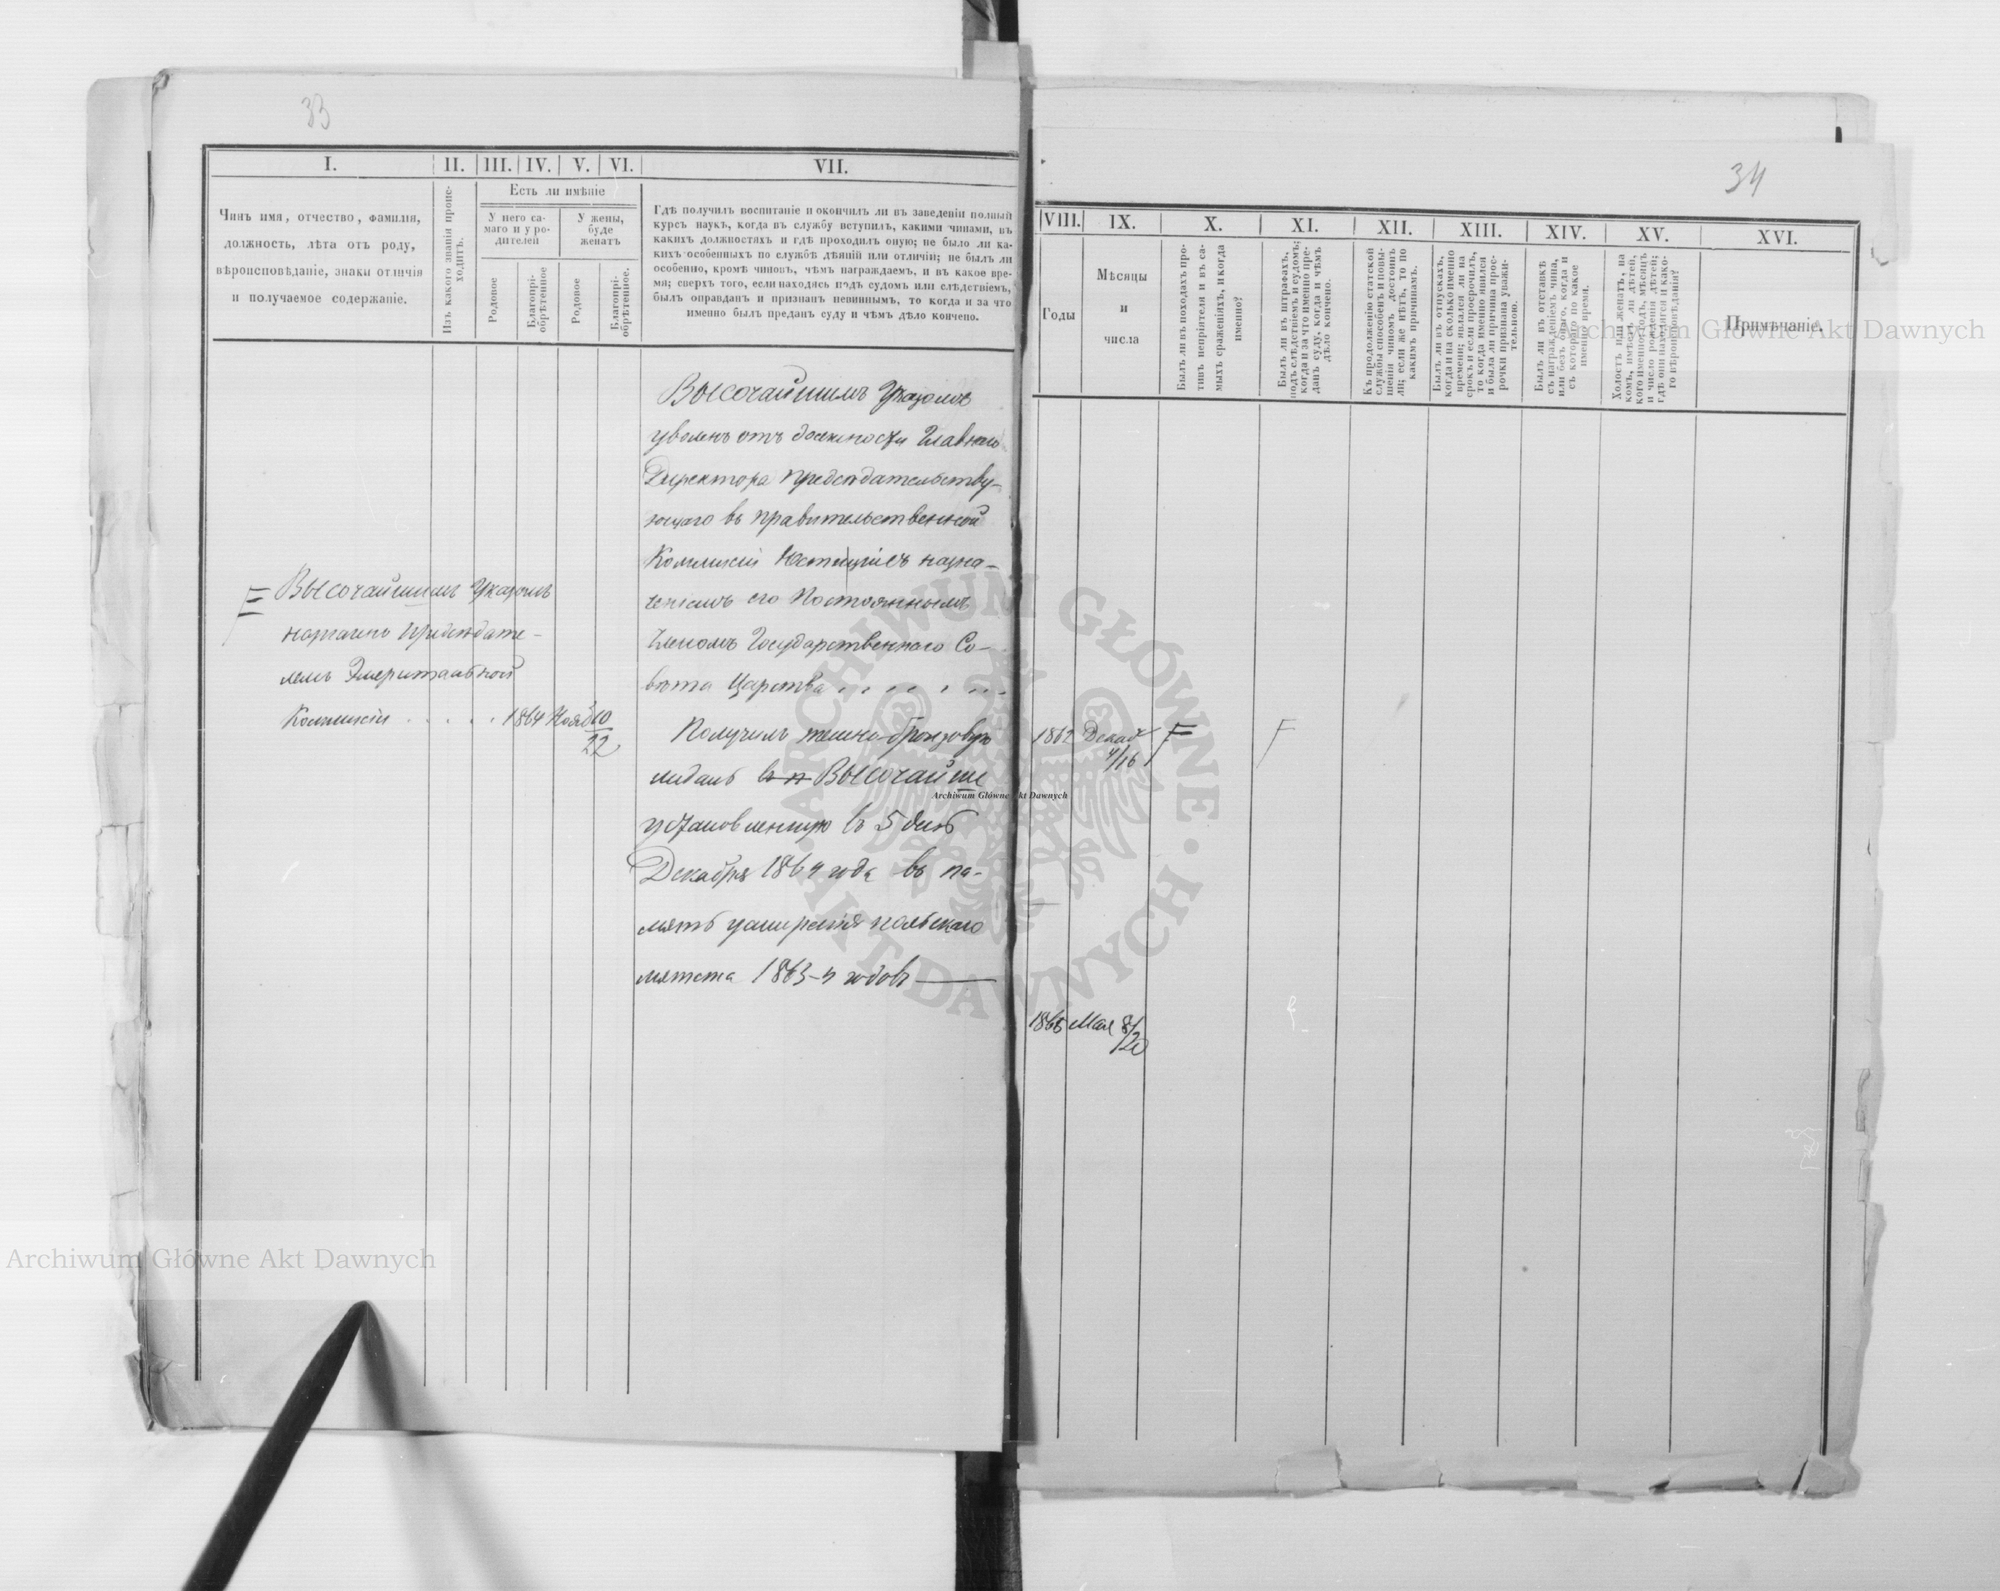 33
I.
II.
III.
IV.
V.
VI.
VII.
Чинъ имя, отчество, фамилія,
должность, лѣта отъ роду,
вѣроисповѣданіе, знаки отличія
и получаемое содержаніе.
Изъ какого званія проис-
ходитъ.
Есть ли имѣніе
У него са-
маго и у ро-
дителей
У жены,
буде
женатъ
Родовое
Благопрі-
обрѣтенное
Родовое
Благопрі-
обрѣтенное.
Гдѣ получилъ воспитаніе и окончилъ ли въ заведеніи полный
курсъ наукъ, когда въ службу вступилъ, какими чинами, въ
какихъ должностяхъ и гдѣ проходилъ оную; не было ли ка-
кихъ особенныхъ по службѣ дѣяній или отличій; не былъ ли
особенно, кромѣ чиновъ, чѣмъ награждаемъ, и въ какое вре-
мя; сверхъ того, если находясь подъ судомъ или слѣдствіемъ,
былъ оправданъ и признанъ невиннымъ, то когда и за что
именно былъ преданъ суду и чѣмъ дѣло кончено.
Высочайшимъ Указомъ
назначенъ Предсѣдате-
лемъ Эмеритальной
Коммисіи . . . . . 1864 Нояб 10/22
Высочайшимъ Указомъ
уволенъ отъ должности Главнаго
Директора Предсѣдательству-
ющаго въ Правительственной
Коммисіи Юстиціи съ назна-
ченіемъ его Постояннымъ
Членомъ Государственнаго Со-
вѣта Царства . . . . . . .
Получилъ темно-бронзовую
медаль Высочайше
установленную въ 5 день
Декабря 1864 года въ па-
мять усмиренія польскаго
мятежа 1863-4 годовъ
34
VIII.
IX.
X.
XI.
XII.
XIII.
XIV.
XV.
XVI.
Годы
Мѣсяцы
и
числа
Былъ ли въ походахъ про-
тивъ непріятеля и въ са-
мыхъ сраженіяхъ, и когда
именно?
Былъ ли въ штрафахъ,
подъ слѣдствіемъ и судомъ;
когда и за что именно пре-
данъ суду, когда и чѣмъ
дѣло кончено.
Къ продолженію статской
службы способенъ и повы-
шенія чиномъ достоинъ
ли; если же нѣтъ, то по
какимъ причинамъ.
Былъ ли въ отпускахъ,
когда и на сколько именно
времени; являлся ли на
срокъ и если просрочилъ,
то когда именно явился
и была ли причина прос-
рочки признана уважи-
тельною.
Былъ ли въ отставкѣ
съ награжденіемъ чина,
или безъ онаго, когда и
съ котораго по какое
именно время.
Холостъ или женатъ, на
комъ, имѣетъ ли дѣтей,
кого именно; годъ, мѣсяцъ
и число рожденія дѣтей;
гдѣ они находятся и како-
го вѣроисповѣданія?
Примѣчаніе.
1862 Декаб 4/16
1865 Мая 8/20
Archiwum Główne Akt Dawnych
Archiwum Główne Akt Dawnych
Archiwum Główne Akt Dawnych
ARCHIWUM GŁÓWNE
AKT DAWNYCH